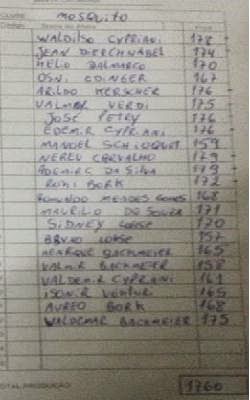 MOSQUITO
WALDISO CYPRIANI 178
JEAN DIERCHNABEL 174
HELIO DALMARCO 170
OSNI ODINGER 167
ARILDO KERSCHER 176
VALMOR VERDI 175
JOSÉ PETRY 176
EDEMIR CYPRIANI 176
MANOEL SCHLOQUET 159
NEREU CARVALHO 179
ADEMIR DA SILVA 179
RONI BORK 172
ROMUNDO MENDES GOMES 168
MAURILIO DE SOUZA 171
SIDNEY LOSSE 170
BRUNO LOSSE 157
HENRIQUE BACHMEIER 165
VALMIR BACKMEIER 158
VALDEMIR CYPRIANI 161
ISONIR VENTUR 165
AUREO BORK 168
WALDEMAR BACKMEIER 175
TOTAL PRODUÇÃO 1760